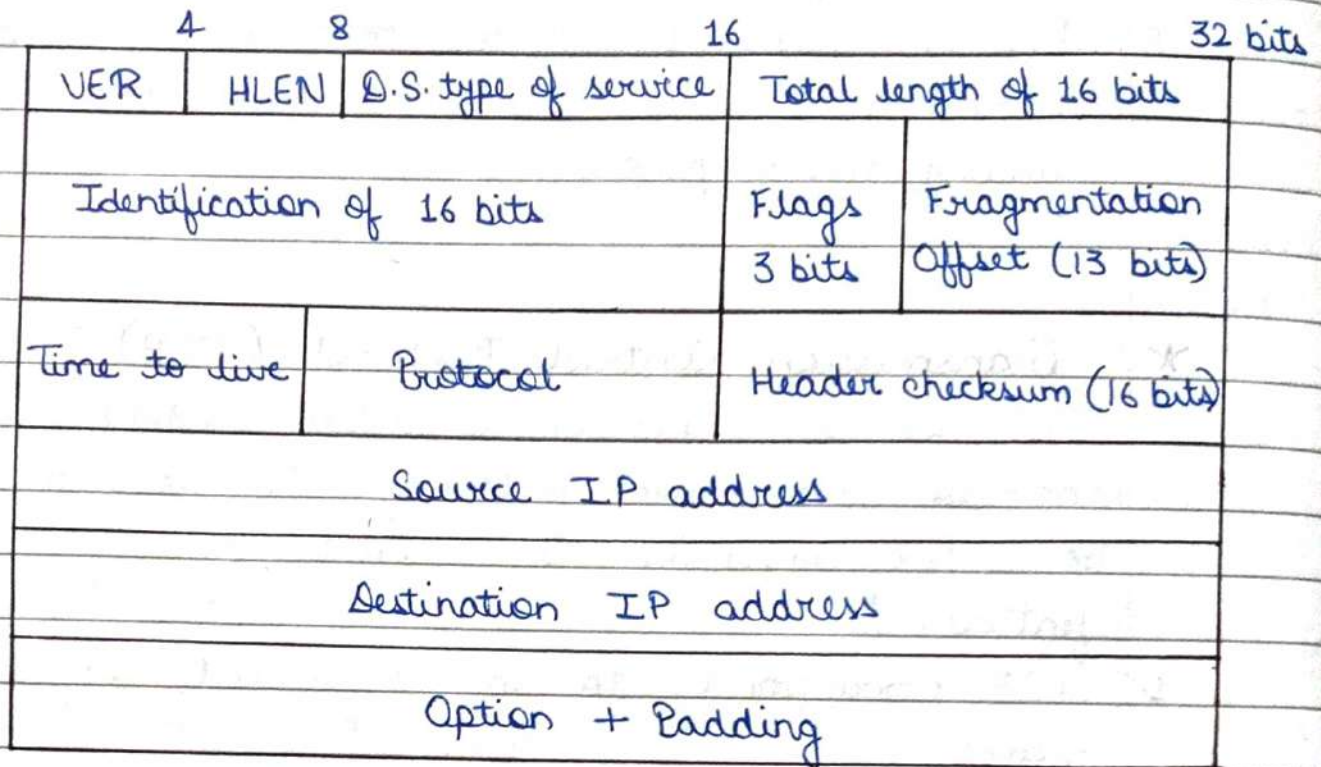 4 8 16 32 bits
VER HLEN D.S. type of service Total length of 16 bits
Identification of 16 bits Flags Fragmentation
3 bits Offset (13 bits)
Time to live Protocol Header checksum (16 bits)
Source IP address
Destination IP address
Option + Padding